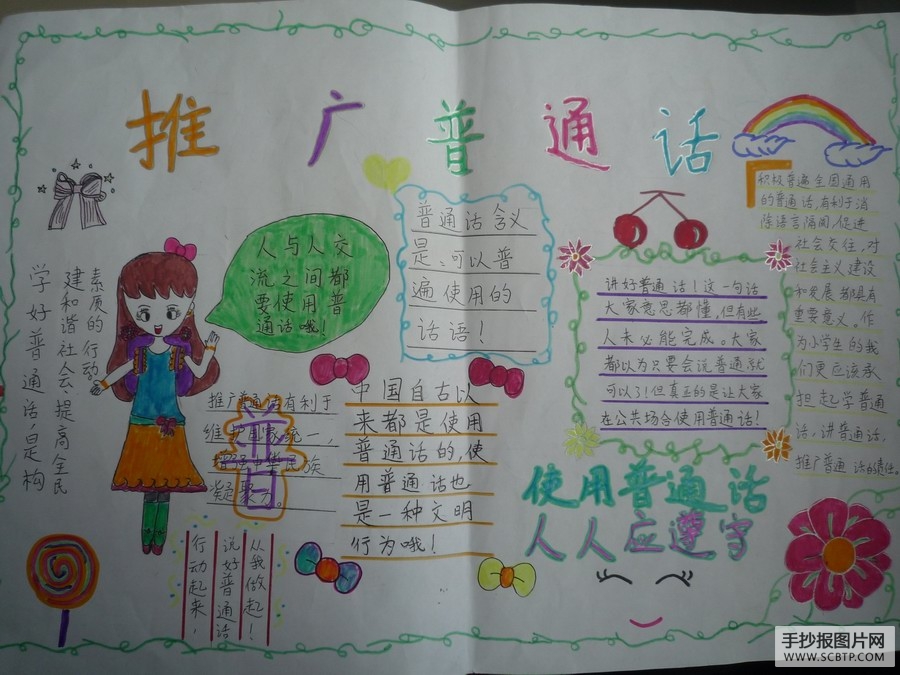 推广普通话
学好普通话,是构
建和谐社会,提高全民
素质的行动。
人与人交
流之间都
要使用普
通话哦！
普通话含义
是:可以普
遍使用的
话语！
积极普遍全国通用
的普通话,有利于消
除语言隔阂,促进
社会交往,对
社会主义建设
和发展都具有
重要意义。作
为小学生的我
们更应该承
担起学普通
话,讲普通话,
推广普通话的责任。
讲好普通话！这一句话
大家意思都懂,但有些
人未必能完成。大家
都以为只要会说普通就
可以了！但真正的是让大家
在公共场合使用普通话！
推广普通话有利于
维护国家统一,
民族
凝聚力。
中国自古以
来都是使用
普通话的,使
用普通话也
是一种文明
行为哦！
使用普通话
人人应遵守
行动起来,
说好普通话
从我做起！
手抄报图片网
WWW.SCBTP.COM